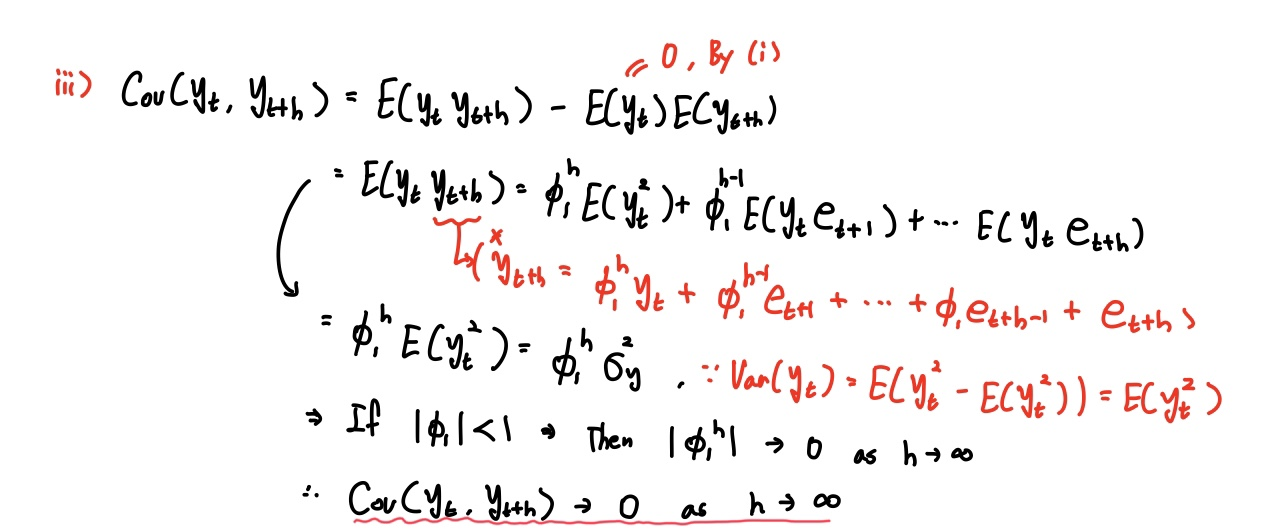 = 0 , By (i)
iii) Cov(y_t, y_{t+h}) = E(y_t y_{t+h}) - E(y_t)E(y_{t+h})
= E(y_t y_{t+h}) = ϕ_1^h E(y_t^2) + ϕ_1^{h-1} E(y_t e_{t+1}) + ... E(y_t e_{t+h})
(* y_{t+h} = ϕ_1^h y_t + ϕ_1^{h-1} e_{t+1} + ... + ϕ_1 e_{t+h-1} + e_{t+h})
= ϕ_1^h E(y_t^2) = ϕ_1^h σ_y^2 . ∵ Var(y_t) = E(y_t^2 - E(y_t^2)) = E(y_t^2)
⇒ If |ϕ_1| < 1 ⇒ Then |ϕ_1^h| → 0 as h → ∞
∴ Cov(y_t, y_{t+h}) → 0 as h → ∞